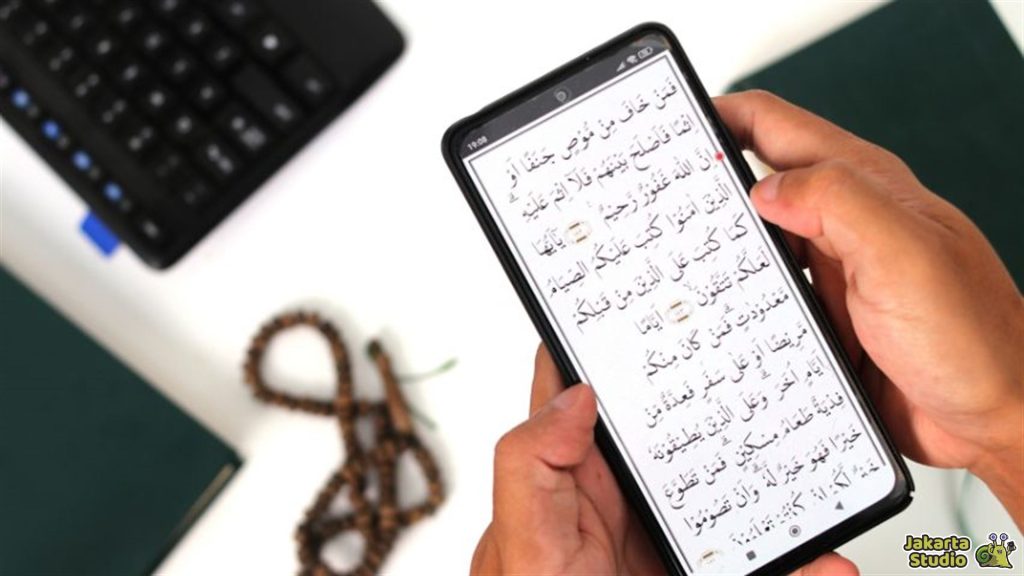 19:08
فَمَنْ خَافَ مِنْ مُّوْصٍ جَنَفًا اَوْ
اِثْمًا فَاَصْلَحَ بَيْنَهُمْ فَلَآ اِثْمَ عَلَيْهِ ۗ
اِنَّ اللّٰهَ غَفُوْرٌ رَّحِيْمٌ يٰٓاَيُّهَا
الَّذِيْنَ اٰمَنُوْا كُتِبَ عَلَيْكُمُ الصِّيَامُ
كَمَا كُتِبَ عَلَى الَّذِيْنَ مِنْ قَبْلِكُمْ
لَعَلَّكُمْ تَتَّقُوْنَۙ اَيَّامًا
مَّعْدُوْدٰتٍۗ فَمَنْ كَانَ مِنْكُمْ
مَّرِيْضًا اَوْ عَلٰى سَفَرٍ فَعِدَّةٌ مِّنْ
اَيَّامٍ اُخَرَ ۗ وَعَلَى الَّذِيْنَ يُطِيْقُوْنَهٗ
فِدْيَةٌ طَعَامُ مِسْكِيْنٍۗ فَمَنْ تَطَوَّعَ
خَيْرًا فَهُوَ خَيْرٌ لَّهٗ ۗ وَاَنْ تَصُوْمُوْا
Jakarta
Studio